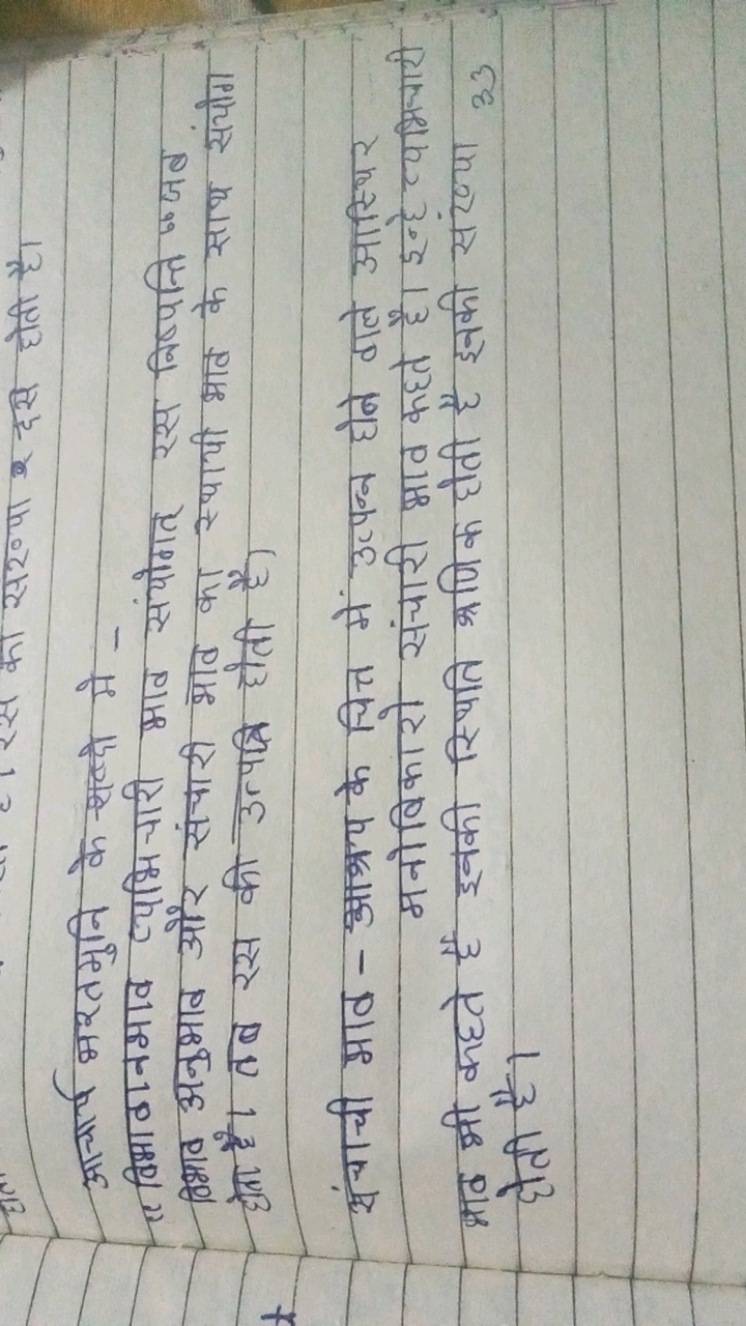 रस की संख्या दस होती है।
आचार्य भरतमुनि के शब्दो मे –
"विभावानुभाव व्यभिचारी भाव संयोगात् रस निष्पत्ति जब
विभाव अनुभाव और संचारी भाव का स्थायी भाव के साथ संयोग
होता है। तब रस की उत्पत्ति होती है।
संचारी भाव – आश्रय के चित में उत्पन्न होने वाले आस्थिर
मनोविकारो संचारी भाव कहते हैं। इन्हे व्यभिचारी
भाव भी कहते हैं इनकी स्थिति क्षणिक होती है इनकी संख्या 33
होती है।